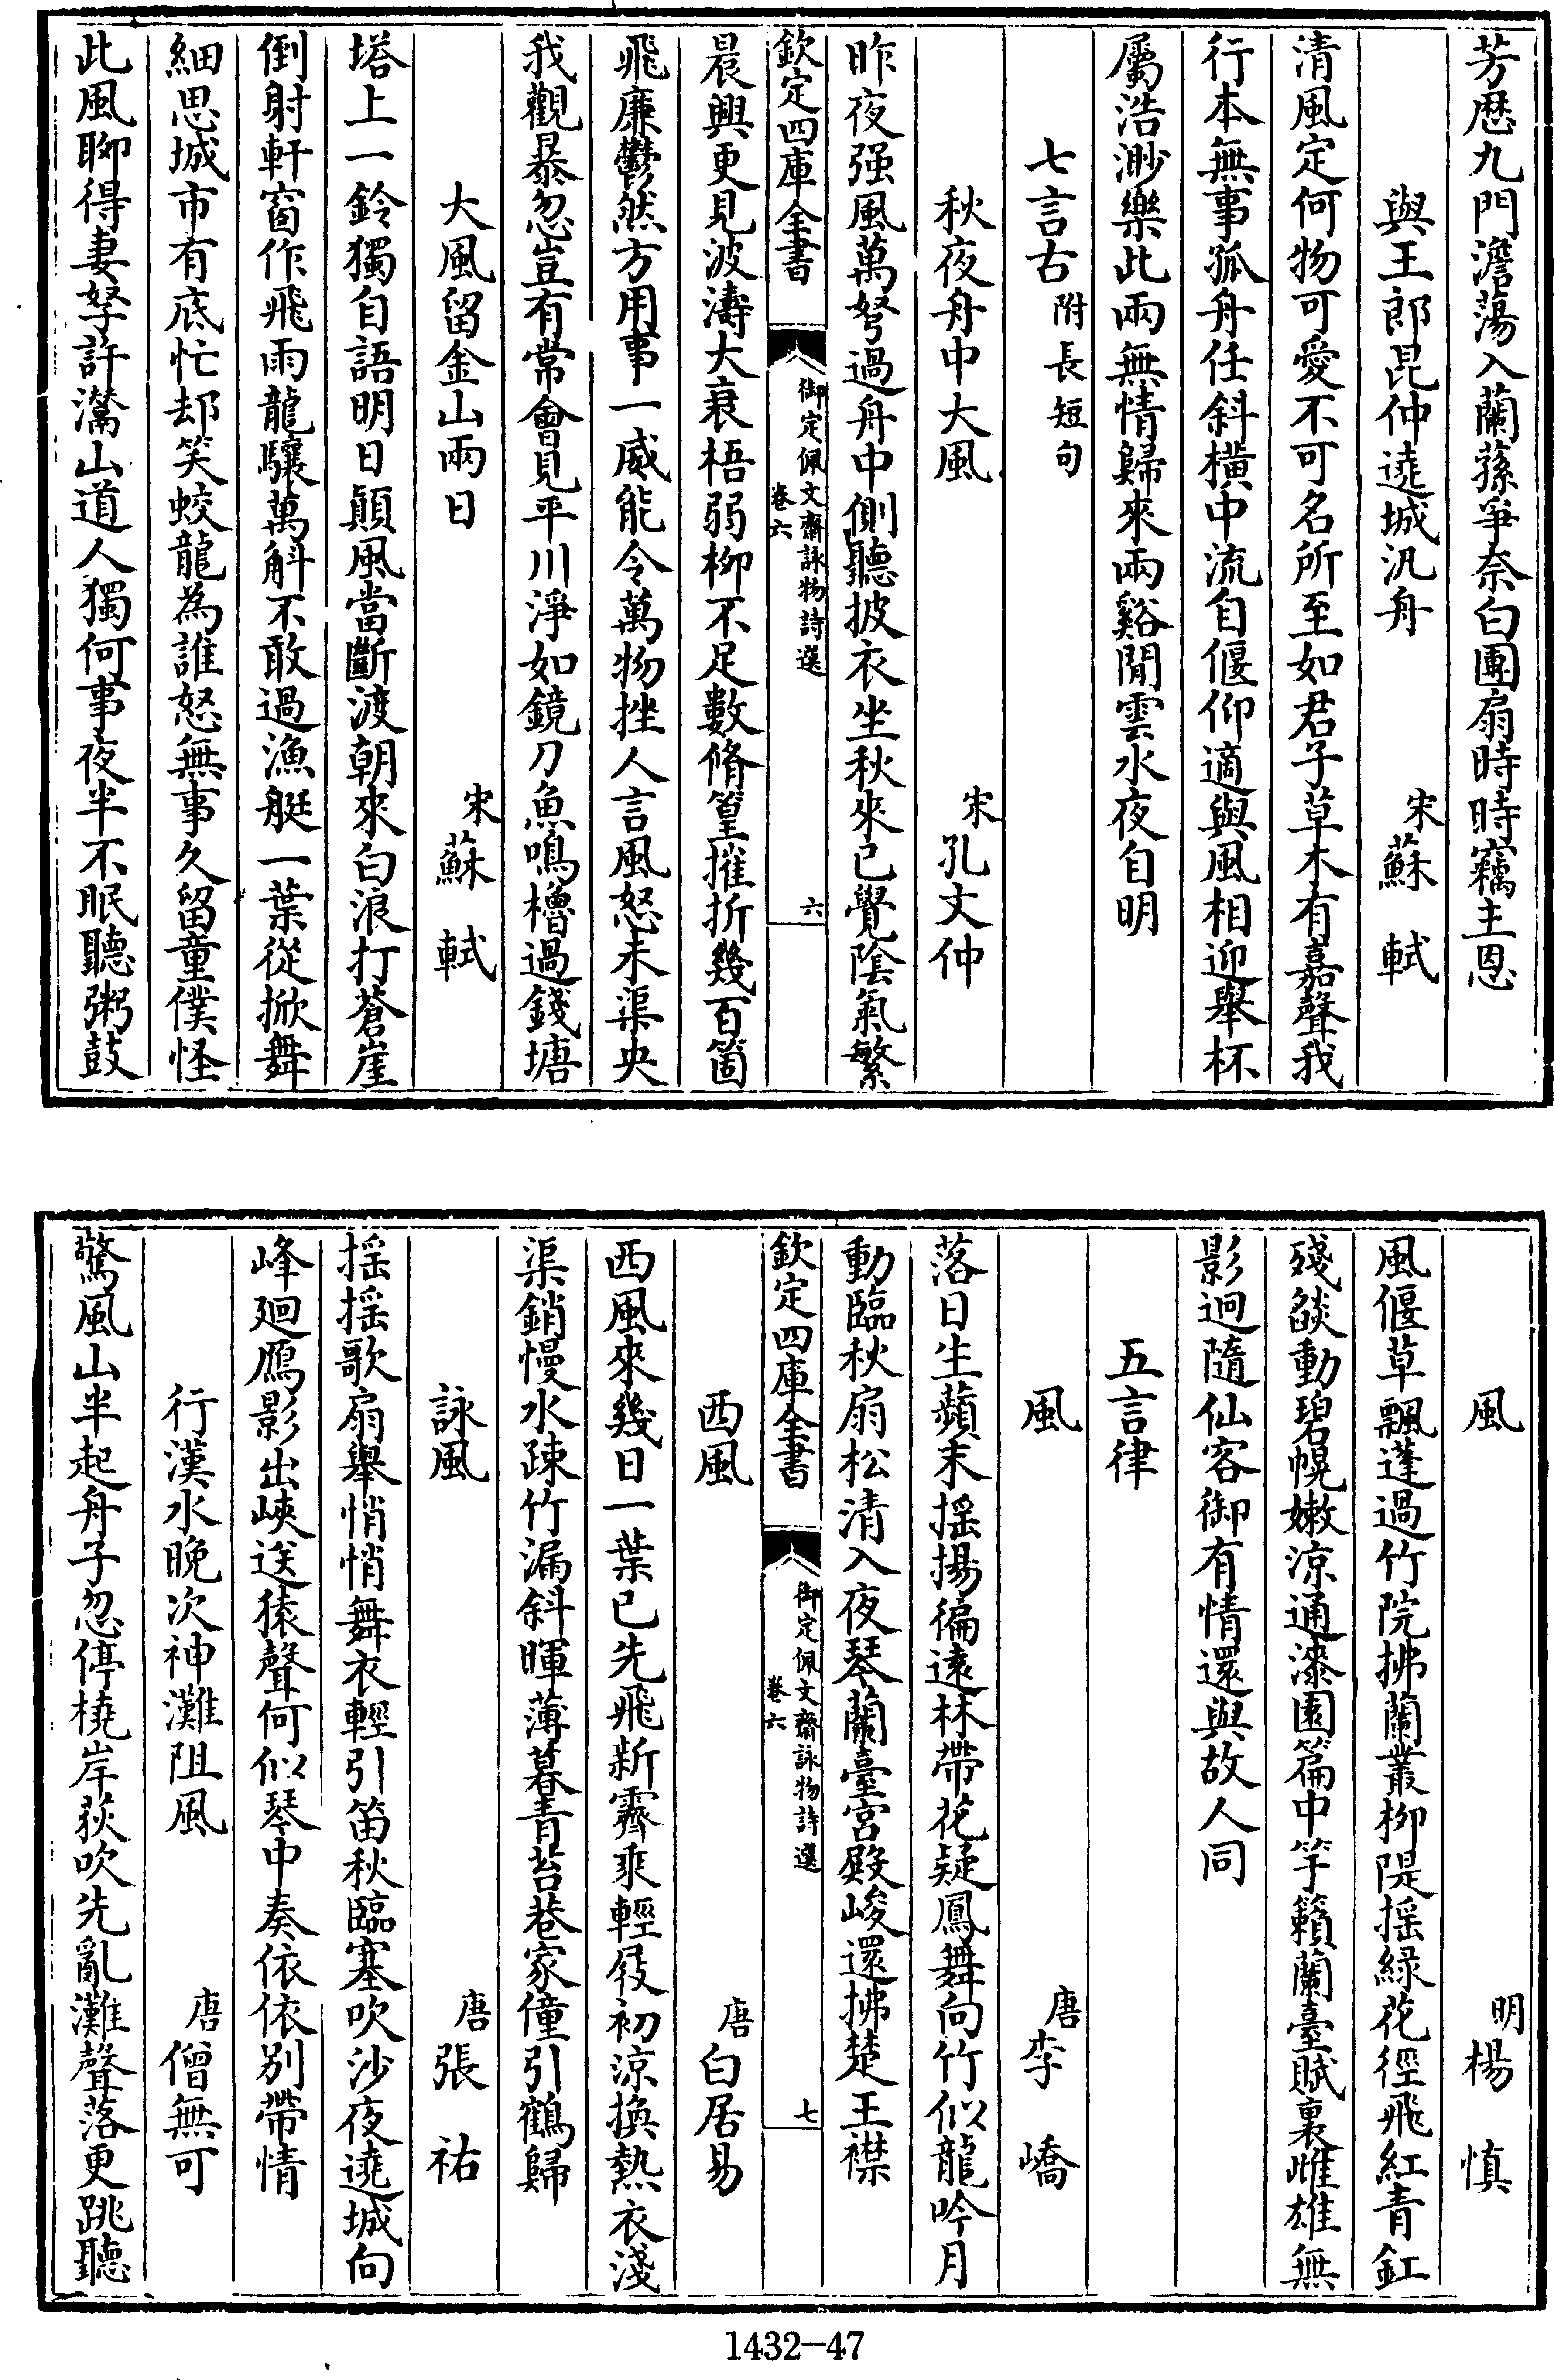 芳歴九門澹蕩入蘭蓀爭奈白團扇時時竊主恩
與王郎昆仲遶城汎舟　宋蘇軾
清風定何物可愛不可名所至如君子草木有嘉聲我
行本無事孤舟任斜橫中流自偃仰適與風相迎舉杯
屬浩渺樂此兩無情歸來兩谿間雲水夜自明
七言古附長短句
秋夜舟中大風　宋孔文仲
昨夜强風萬弩過舟中側聽披衣坐秋來已覺陰氣繁
欽定四庫全書　御定佩文齋詠物詩選
卷六　六
晨興更見波濤大衰梧弱柳不足數脩篁摧折幾百箇
飛廉鬱然方用事一威能令萬物挫人言風怒未渠央
我觀暴忽豈有常會見平川淨如鏡刀魚鳴櫓過錢塘
大風留金山兩日　宋蘇軾
塔上一鈴獨自語明日顛風當斷渡朝來白浪打蒼崖
倒射軒窗作飛雨龍驤萬斛不敢過漁艇一葉從掀舞
細思城市有底忙却笑蛟龍為誰怒無事久留童僕怪
此風聊得妻孥許灊山道人獨何事夜半不眠聽粥鼓
風　明楊慎
風偃草飄蓬過竹院拂蘭叢柳隄揺綠花徑飛紅青釭
殘燄動碧幌嫩涼通漆園篇中竽籟蘭臺賦裏雌雄無
影迥隨仙客御有情還與故人同
五言律
風　唐李嶠
落日生蘋末揺揚徧遠林帶花疑鳳舞向竹似龍吟月
動臨秋扇松清入夜琴蘭臺宮殿峻還拂楚王襟
欽定四庫全書　御定佩文齋詠物詩選
卷六　七
西風　唐白居易
西風來幾日一葉已先飛新霽乘輕屐初涼換熱衣淺
渠銷慢水疎竹漏斜暉薄暮青苔巷家僮引鶴歸
詠風　唐張祐
揺揺歌扇舉悄悄舞衣輕引笛秋臨塞吹沙夜遶城向
峰廻鴈影出峽送猿聲何似琴中奏依依別帶情
行漢水晚次神灘阻風　唐僧無可
驚風山半起舟子忽停橈岸荻吹先亂灘聲落更跳聽
1432-47